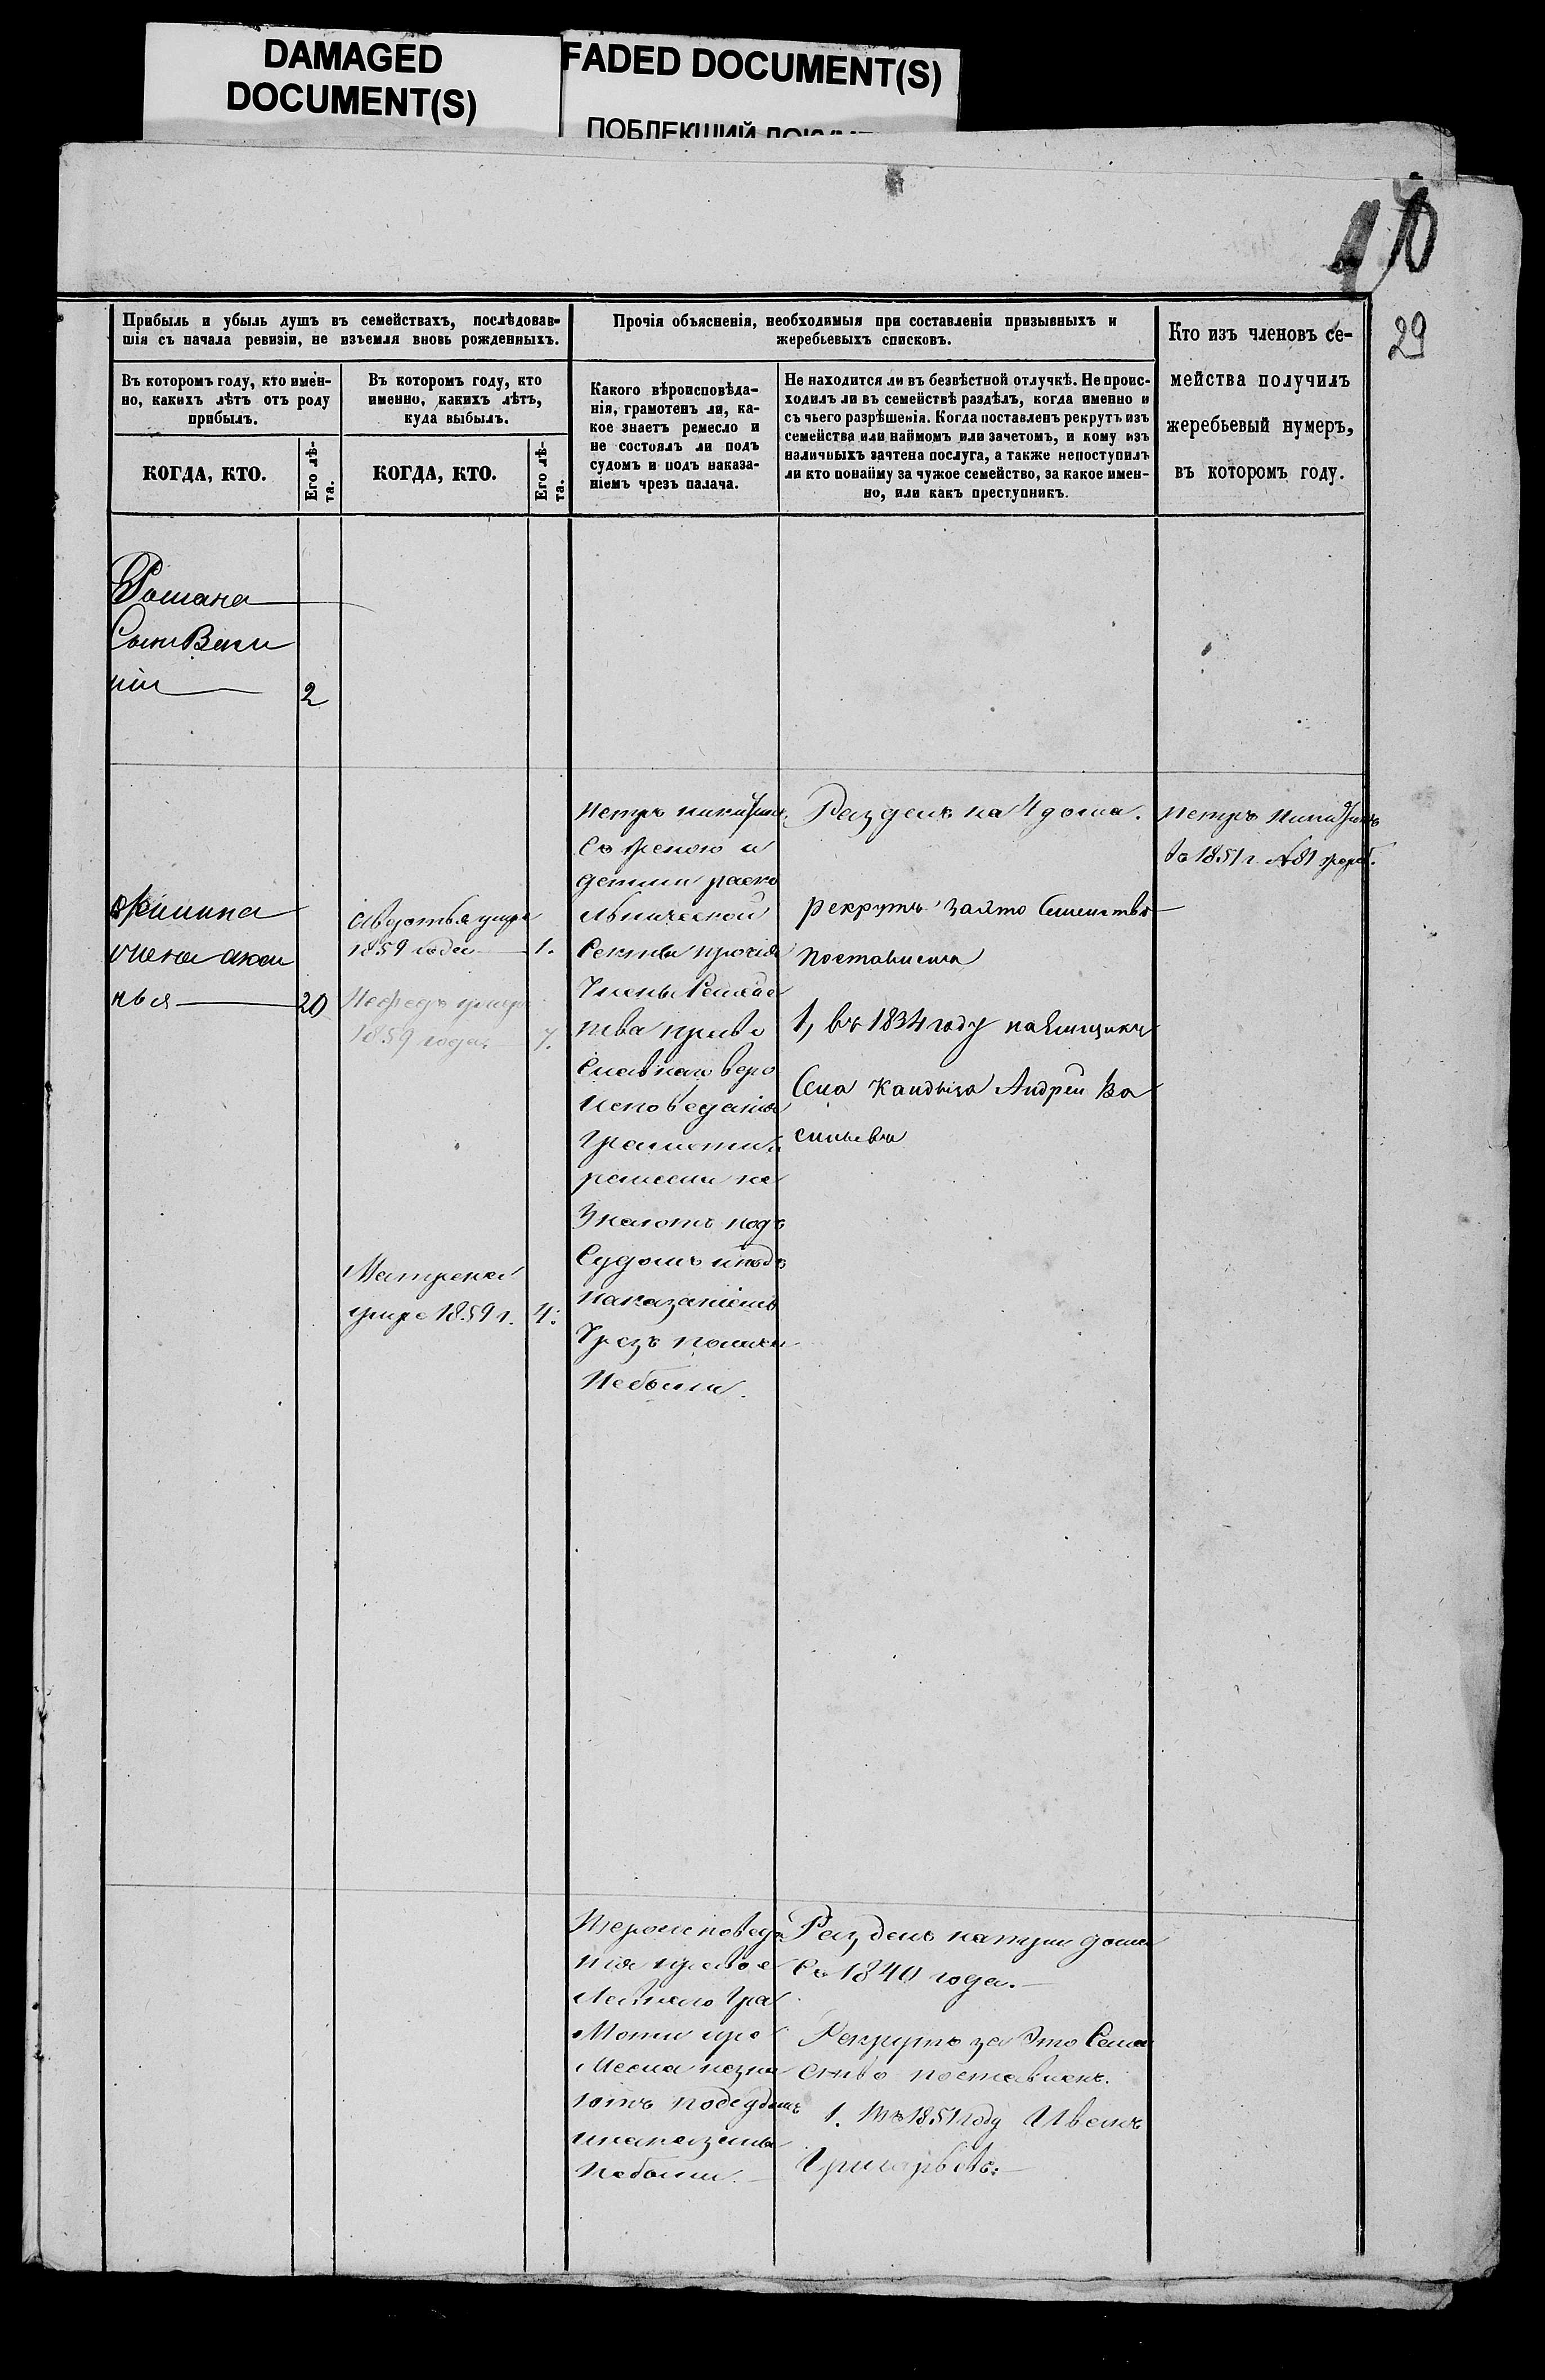 DAMAGED
DOCUMENT(S)
FADED DOCUMENT(S)
ПОБЛЕКШИЙ
10
29
Прибыль и убыль душъ въ семействахъ, послѣдовав-
шія съ начала ревизіи, не изъемля вновь рожденныхъ.
Прочія объясненія, необходимыя при составленіи призывныхъ и
жеребьевыхъ списковъ.
Кто изъ членовъ се-
мейства получилъ
жеребьевый нумеръ,
въ которомъ году.
Въ которомъ году, кто имен-
но, какихъ лѣтъ отъ роду
прибылъ.
Въ которомъ году, кто
именно, какихъ лѣтъ,
куда выбылъ.
Какого вѣроисповѣда-
нія, грамотенъ ли, ка-
кое знаетъ ремесло и
не состоялъ ли подъ
судомъ и подъ наказа-
ніемъ чрезъ палача.
Не находится ли въ безвѣстной отлучкѣ. Не проис-
ходилъ ли въ семействѣ раздѣлъ, когда именно и
съ чьего разрѣшенія. Когда поставленъ рекрутъ изъ
семейства или наймомъ или зачетомъ, и кому изъ
наличныхъ зачтена послуга, а также непоступилъ
ли кто понайму за чужое семейство, за какое имен-
но, или какъ преступникъ.
КОГДА, КТО.
Его лѣ-
та.
КОГДА, КТО.
Его лѣ-
та.
Романа
Сынъ
2
20
Авдотья умре
1859 года 1.
умре
1859 года 7.
Матрена
умре 1859 г. 4.
Петръ Никитинъ
Съ женою и
детьми раско
льнической
Секты прочія
Члены Семѣй
ства право
славнаго веро
исповеданія
Грамоти и
ремесла не
Знаютъ подъ
Судомъ и подъ
наказаніемъ
Чрезъ
Небыли.
Разделъ на 4 дома.
рекрутъ За это Семейство
поставленъ
1, въ 1834 году
Села Андрей Ва
сильевъ
Петръ Никитинъ
въ 1851 г. №81 жереб.
Вероисповеда
нія право с
лавнаго Гра
моти и ре
месла незна
ютъ подсудомъ
Небыли.
Разделъ натри дома
Съ 1840 года.
Рекрутъ за Это Семе
ство поставленъ.
1. Въ 1851 году Иванъ
Григорьевъ.